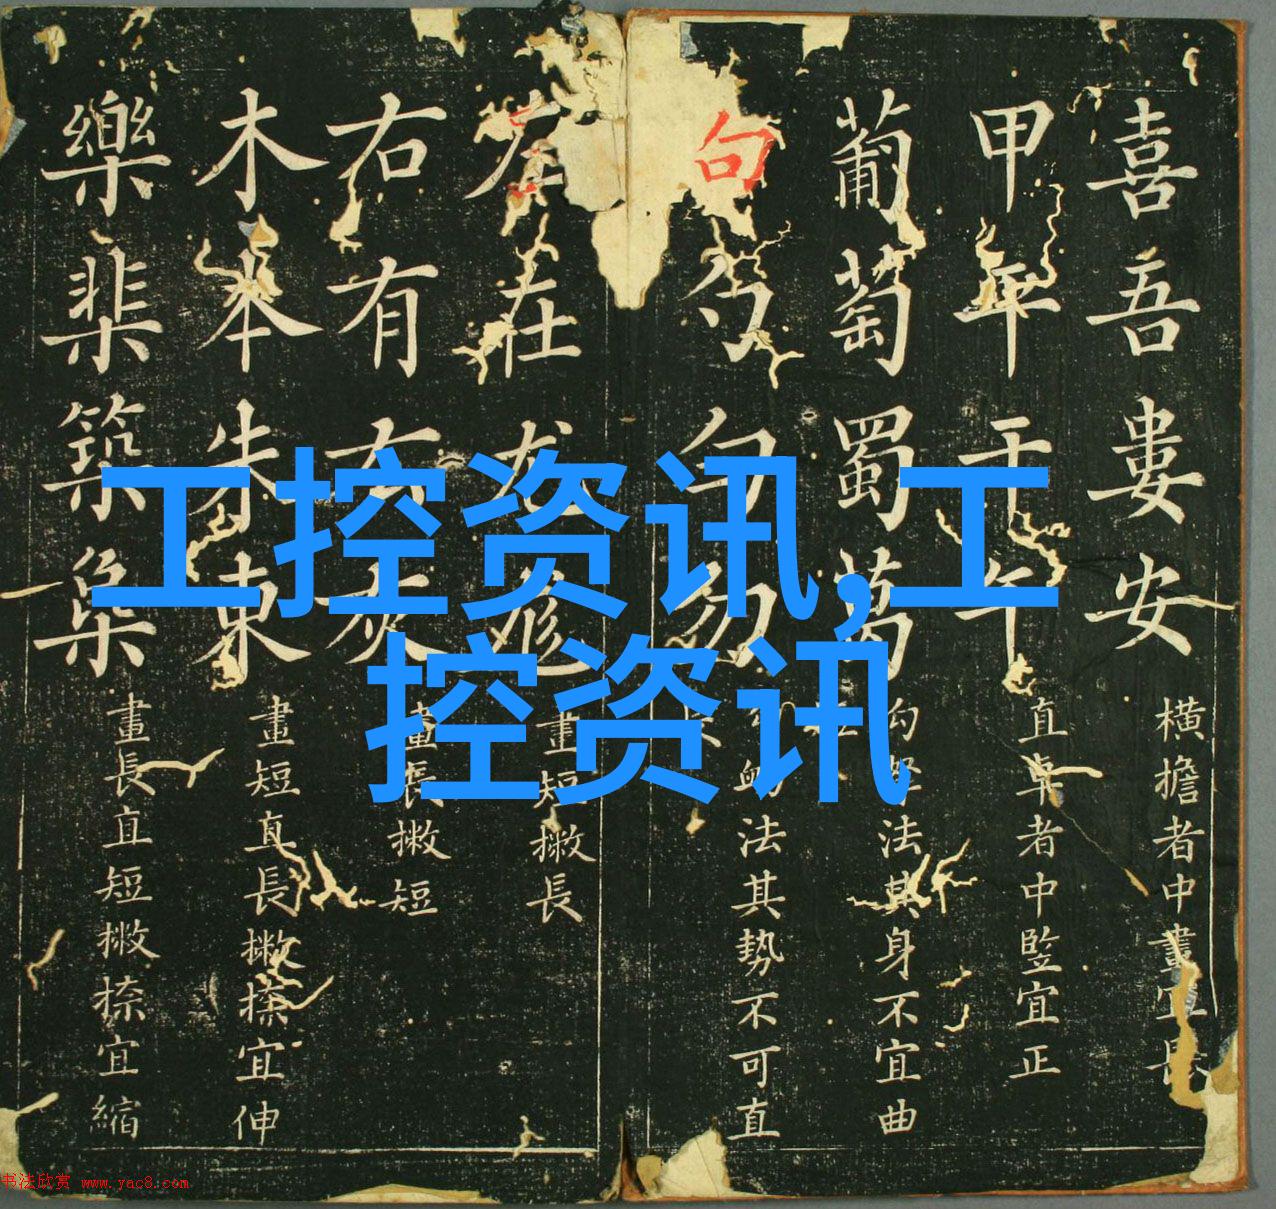 工控资讯,工
控资讯
喜吾婁安
横擔者中畫宜長
甲平干午
直卓者中竪宜正
葡萄蜀葛
法其身不宜曲
句勺匀勿
法其势不可直
左在尤
畫短撇長
右有灰
畫長撇短
木本朱東
畫短直長撇捺宜伸
樂棐築梟
畫長直短撇捺宜縮
书法欣赏 www.yac8.com